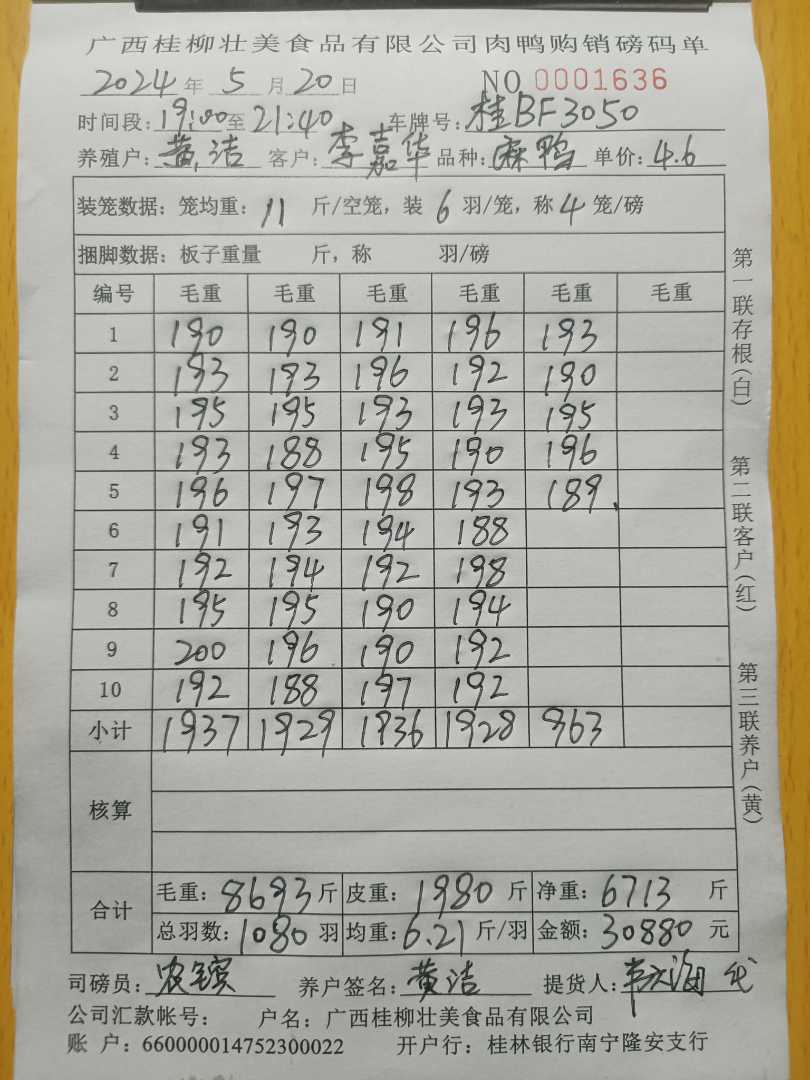 广西桂柳壮美食品有限公司肉鸭购销磅码单
2024年5月20日 NO 0001636
时间段:19:00至21:40 车牌号:桂BF3050
养殖户:黄洁 客户:李嘉华 品种:麻鸭 单价:4.6
装笼数据:笼均重:11斤/空笼,装6羽/笼,称4笼/磅
捆脚数据:板子重量 斤,称 羽/磅
编号 毛重 毛重 毛重 毛重 毛重 毛重
1 190 190 191 196 193
2 193 193 196 192 190
3 195 195 193 193 195
4 193 188 195 190 196
5 196 197 198 193 189
6 191 193 194 188
7 192 194 192 198
8 195 195 190 194
9 200 196 190 192
10 192 188 197 192
小计 1937 1929 1936 1928 963
核算
合计 毛重:8693斤 皮重:1980斤 净重:6713斤
总羽数:1080羽 均重:6.21斤/羽 金额:30880元
司磅员:农镔 养户签名:黄洁 提货人:韦海代
公司汇款帐号: 户名:广西桂柳壮美食品有限公司
账 户:660000014752300022 开户行:桂林银行南宁隆安支行
第一联存根(白)
第二联客户(红)
第三联养户(黄)